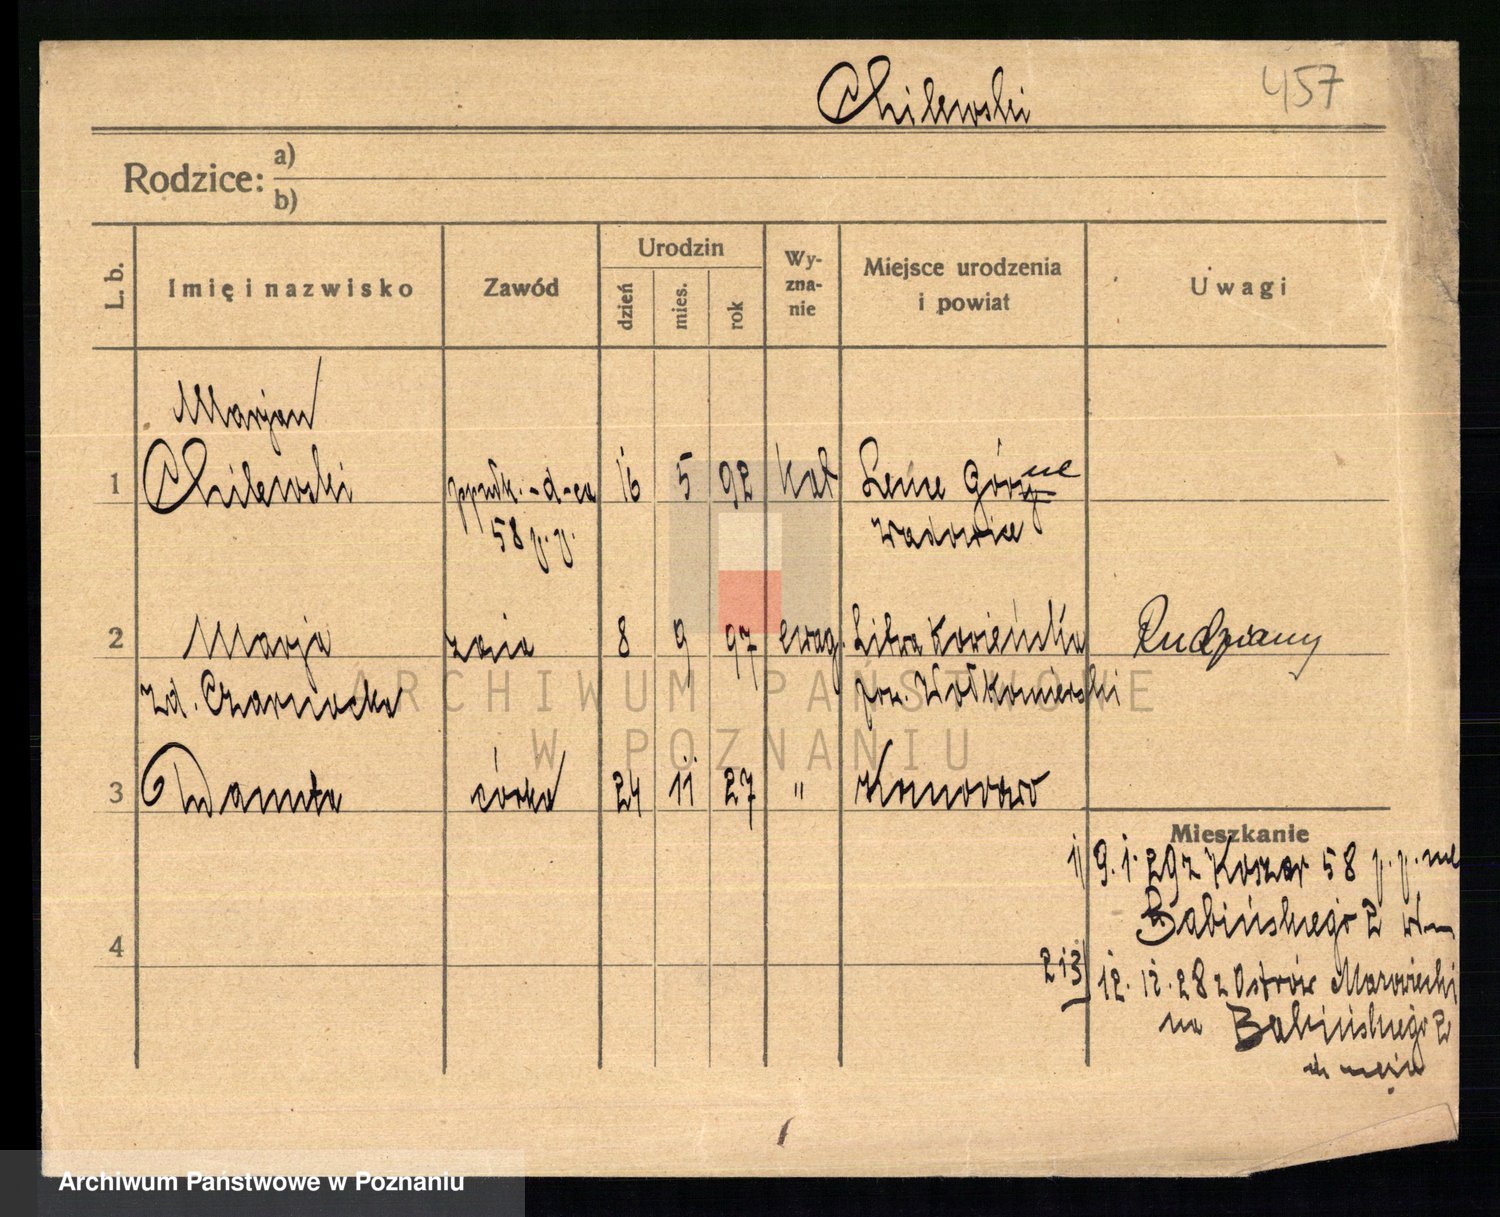 Chilewski 457
Rodzice: a)
b)
L. b.
Imię i nazwisko
Zawód
Urodzin
dzień
mies.
rok
Wy-
zna-
nie
Miejsce urodzenia
i powiat
Uwagi
Marjan
1 Chilewski ppułk. -d-ca 16 5 92 kat
58 p. p. Wadowice
2 Marja żona 8 9 97 ewag. Litwa Kowieńska
zd. Czarnocka pow. Wołkomierski
3 Danuta córka 24 11 27 "
4
Mieszkanie
1) 9.1.29 z Koszar 58 p. p. na
Babińskiego 2
2 i 3) 12. 12. 28 z Ostrów Mazowiecki
na Babińskiego 2
ARCHIWUM PAŃSTWOWE
W POZNANIU
Archiwum Państwowe w Poznaniu